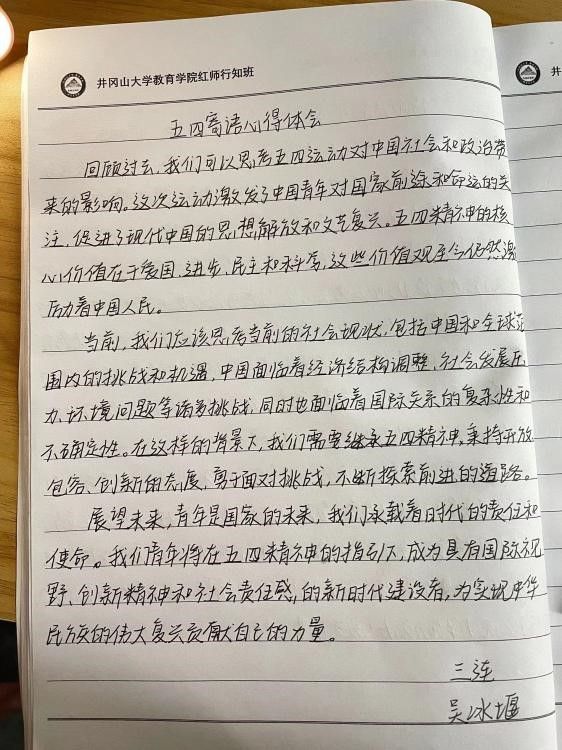 井冈山大学教育学院红师行知班
井冈
五四寄语心得体会
回顾过去,我们可以思考五四运动对中国社会和政治带
来的影响。这次运动激发了中国青年对国家前途和命运的关
注,促进了现代中国的思想解放和文艺复兴。五四精神的核
心价值在于爱国、进步、民主和科学,这些价值观至今仍然激
励着中国人民。
当前,我们应该思考当前的社会现状,包括中国和全球范
围内的挑战和机遇,中国面临着经济结构调整、社会发展压
力、环境问题等诸多挑战,同时也面临着国际关系的复杂性和
不确定性。在这样的背景下,我们需要继承五四精神,秉持开放
包容、创新的态度,勇于面对挑战,不断探索前进的道路。
展望未来,青年是国家的未来,我们承载着时代的责任和
使命。我们青年将在五四精神的指引下,成为具有国际视
野、创新精神和社会责任感,的新时代建设者,为实现中华
民族的伟大复兴贡献自己的力量。
三连
吴冰堰